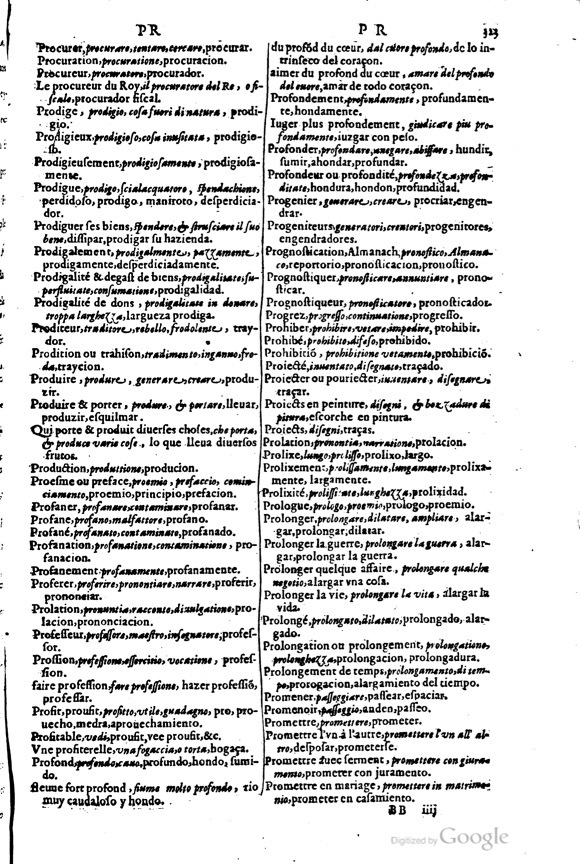 PR
PR
323
Procurer, procurare, tentare, cercare, procurar.
Procuration, procuratione, procuracion.
Procureur, procuratore, procurador.
Le procureur du Roy, il procuratore del Re, o fi-
scale, procurador fiscal.
Prodige, prodigio, cosa fuori di natura, prodi-
gio.
Prodigieux, prodigioso, cosa inusitata, prodigio-
so.
Prodigieusement, prodigiosamente, prodigiosa-
mente.
Prodigue, prodigo, scialacquatore, spendachione,
perdidoso, prodigo, maniroto, desperdicia-
dor.
Prodiguer ses biens, spendere, & strusciare il suo
bene, dissipar, prodigar su hazienda.
Prodigalement, prodigalmente, pazzamente,
prodigamente, desperdiciadamente.
Prodigalité & degast de biens, prodigalitate, su-
perfluitate, consumatione, prodigalidad.
Prodigalité de dons, prodigalitate in donare,
troppa larghezza, largueza prodiga.
Proditeur, traditore, rebello, frodolente, tray-
dor.
Prodition ou trahison, tradimento, inganno, fro-
da, traycion.
Produire, produre, generare, creare, produ-
zir.
Produire & porter, produre, & portare, lleuar,
produzir, esquilmar.
Qui porte & produit diuerses choses, che porta,
& produce varie cose, lo que lleua diuersos
frutos.
Production, produttione, producion.
Proesme ou preface, proemio, prefaccio, comin-
ciamento, proemio, principio, prefacion.
Profaner, profanare, contaminare, profanar.
Profane, profano, malfattore, profano.
Profané, profanato, contaminato, profanado.
Profanation, profanatione, contaminatione, pro-
fanacion.
Profanement profanamente, profanamente.
Proferer, proferire, prononciare, narrare, proferir,
prononciar.
Prolation, pronuntia, racconto, diuulgatione, pro-
lacion, prononciacion.
Professeur, professore, maestro, insegnatore, profes-
sor.
Prossion, professione, essercitio, vocatione, profes-
sion.
faire profession, fare professione, hazer professiõ,
professar.
Profit, proufit, profitto, vtile, guadagno, pro, pro-
uecho, medra, aprouechamiento.
Profitable, vedi, proufit, vee proufit, &c.
Vne profiterelle, vna fogaccia, o torta, hogaça.
Profond, profondo, cauo, profundo, hondo, sumi-
do.
fleume fort profond, fiume molto profondo, rio
muy caudaloso y hondo.
du profõd du cœur, dal cuore profondo, de lo in-
trinseco del coraçon.
aimer du profond du cœur, amare del profondo
del cuore, amar de todo coraçon.
Profondement, profundamente, profundamen-
te, hondamente.
Iuger plus profondement, giudicare piu pro-
fondamente, iuzgar con peso.
Profonder, profondare, anegare, abissare, hundir,
sumir, ahondar, profundar.
Profondeur ou profondité, profondezza, profon-
ditate, hondura, hondon, profundidad.
Progenier, generare, creare, procriar, engen-
drar.
Progeniteurs, generatori, creatori, progenitores,
engendradores.
Prognostication, Almanach, pronostico, Almana-
co, reportorio, pronosticacion, pronostico.
Prognostiquer, pronosticare, annuntiare, prono-
sticar.
Prognostiqueur, pronosticatore, pronosticador.
Progrez, progresso, continuatione, progresso.
Prohiber, prohibire, vetare, impedire, prohibir.
Prohibé, prohibito, difeso, prohibido.
Prohibitiõ, prohibitione vetamento, prohibiciõ.
Proiecté, inuentato, disegnato, traçado.
Proiecter ou pouriecter, inuentare, disegnare,
traçar.
Proiects en peinture, disegni, & bozzadure di
pittura, escorche en pintura.
Proiects, disegni, traças.
Prolation, pronontia, narratione, prolacion.
Prolixe, lungo, prolisso, prolixo, largo.
Prolixement, prolissamente, lungamento, prolixa-
mente, largamente.
Prolixité, prolissitate, lunghezza, prolixidad.
Prologue, prologo, proemio, prologo, proemio.
Prolonger, prolongare, dilatare, ampliare, alar-
gar, prolongar, dilatar.
Prolonger la guerre, prolongare la guerra, alar-
gar, prolongar la guerra.
Prolonger quelque affaire, prolongare qualche
negotio, alargar vna cosa.
Prolonger la vie, prolongare la vita, alargar la
vida.
Prolongé, prolongato, dilatato, prolongado, alar-
gado.
Prolongation ou prolongement, prolongatione,
prolonghezza, prolongacion, prolongadura.
Prolongement de temps, prolongamento, di tem-
po, prorogacion, alargamiento del tiempo.
Promener, passeggiare, passear, espaciar.
Promenoir, passeggio, anden, passeo.
Promettre, promettere, prometer.
Promettre l'vn à l'autre, promettere l'vn all' al-
tro, desposar, prometerse.
Promettre auec serment, promettere con giura-
mento, prometer con juramento.
Promettre en mariage, promettere in matrimo-
nio, prometer en casamiento.
BB iiij
Digitized by Google